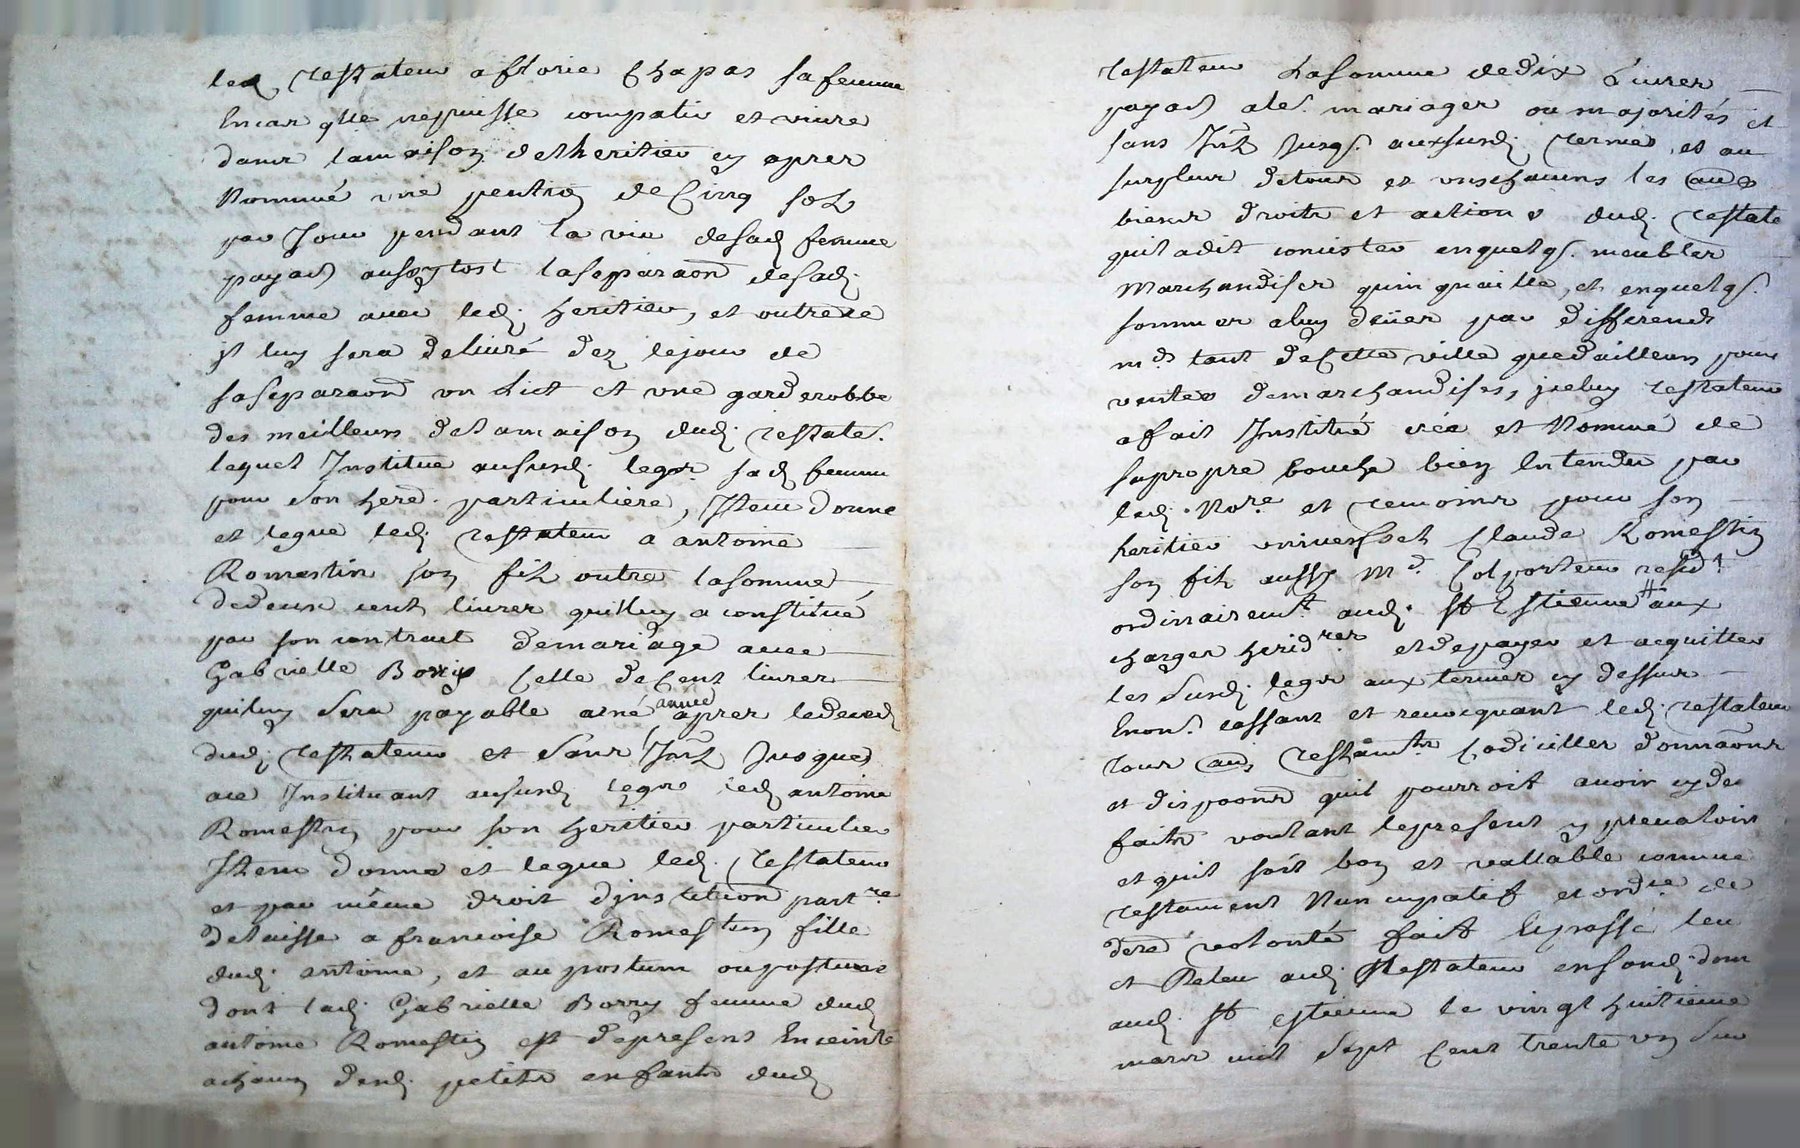 led testateur a florie Chapas sa femme
Encas qlle ne puisse compatir et vivre
dans lamaison delheritier cy apres
Nommé une pention de Cinq sols
par Jour pendant la vie desad femme
payad aussytost laseparaon desad.
femme avec led. heritier, et outre ce
jl luy sera delivré dez lejour de
saseparaon un Lict et une garderobbe
des meilleurs delamaison dud. testatr.
lequel Institue aususd. legs. sad femme
pour Son hered. particuliere, Item donne
et legue led. testateur a antoine
Romestin son fils outre lasomme
dedeux cents livres quilluy a constitué
par son contract demariage avec
Gabrielle Borry Celle deCent livres
quiluy Sera payable année apres ledeced
dud. testateur et Sans Intz Jusques
ace Instituant aususd legs led antoine
Romestin pour son heritier particulier
Item donne et legue led. testateur
et par même droit djnstitution partre
delaisse a francoise Romestin fille
dud. antoine, et au postum ou postume
dont lad. Gabrielle Borry femme dud
antoine Romestin est depresent Enceinte
achaun desd. petits enfants dud
testateur Lasomme dedix Livres
payad ales. mariages ou majorités et
sans Intz Jusqs. auxsusd. termes, et au
surplus detous et unschacuns les aues
biens droits et actions dud. testate
quil adit consister enquelqs. meubles
Marchandises quinquaille, et enquelqs.
sommes aluy deües par differends
mds tant deCette ville quedailleurs pour
ventes demarchandises, jceluy testateur
afait Institué créé et Nommé de
sapropre bouche bien Entendu par
led. Nore et temoins pour son
heritier universsel Claude Romestin
son fils aussy Md. Colporteur residt
ordinairemt aud. St Estienne # aux
charges heridres et depayer et acquitter
les Susd. legs aux termes cy dessus
Enon. cassant et revocquant led. testateur
tous aues testamts Codicilles donnaons
et dispoons quil pourroit avoir cyde
faits voulant lepresent y prevaloir
et quil soit bon et vallable comme
testament Nuncupatif et ordre de
dere volonté fait Et passé leu
et Releu aud. testateur ensond. dom
aud. St estienne le vingt huitieme
mars mil Sept Cent trente un Sur